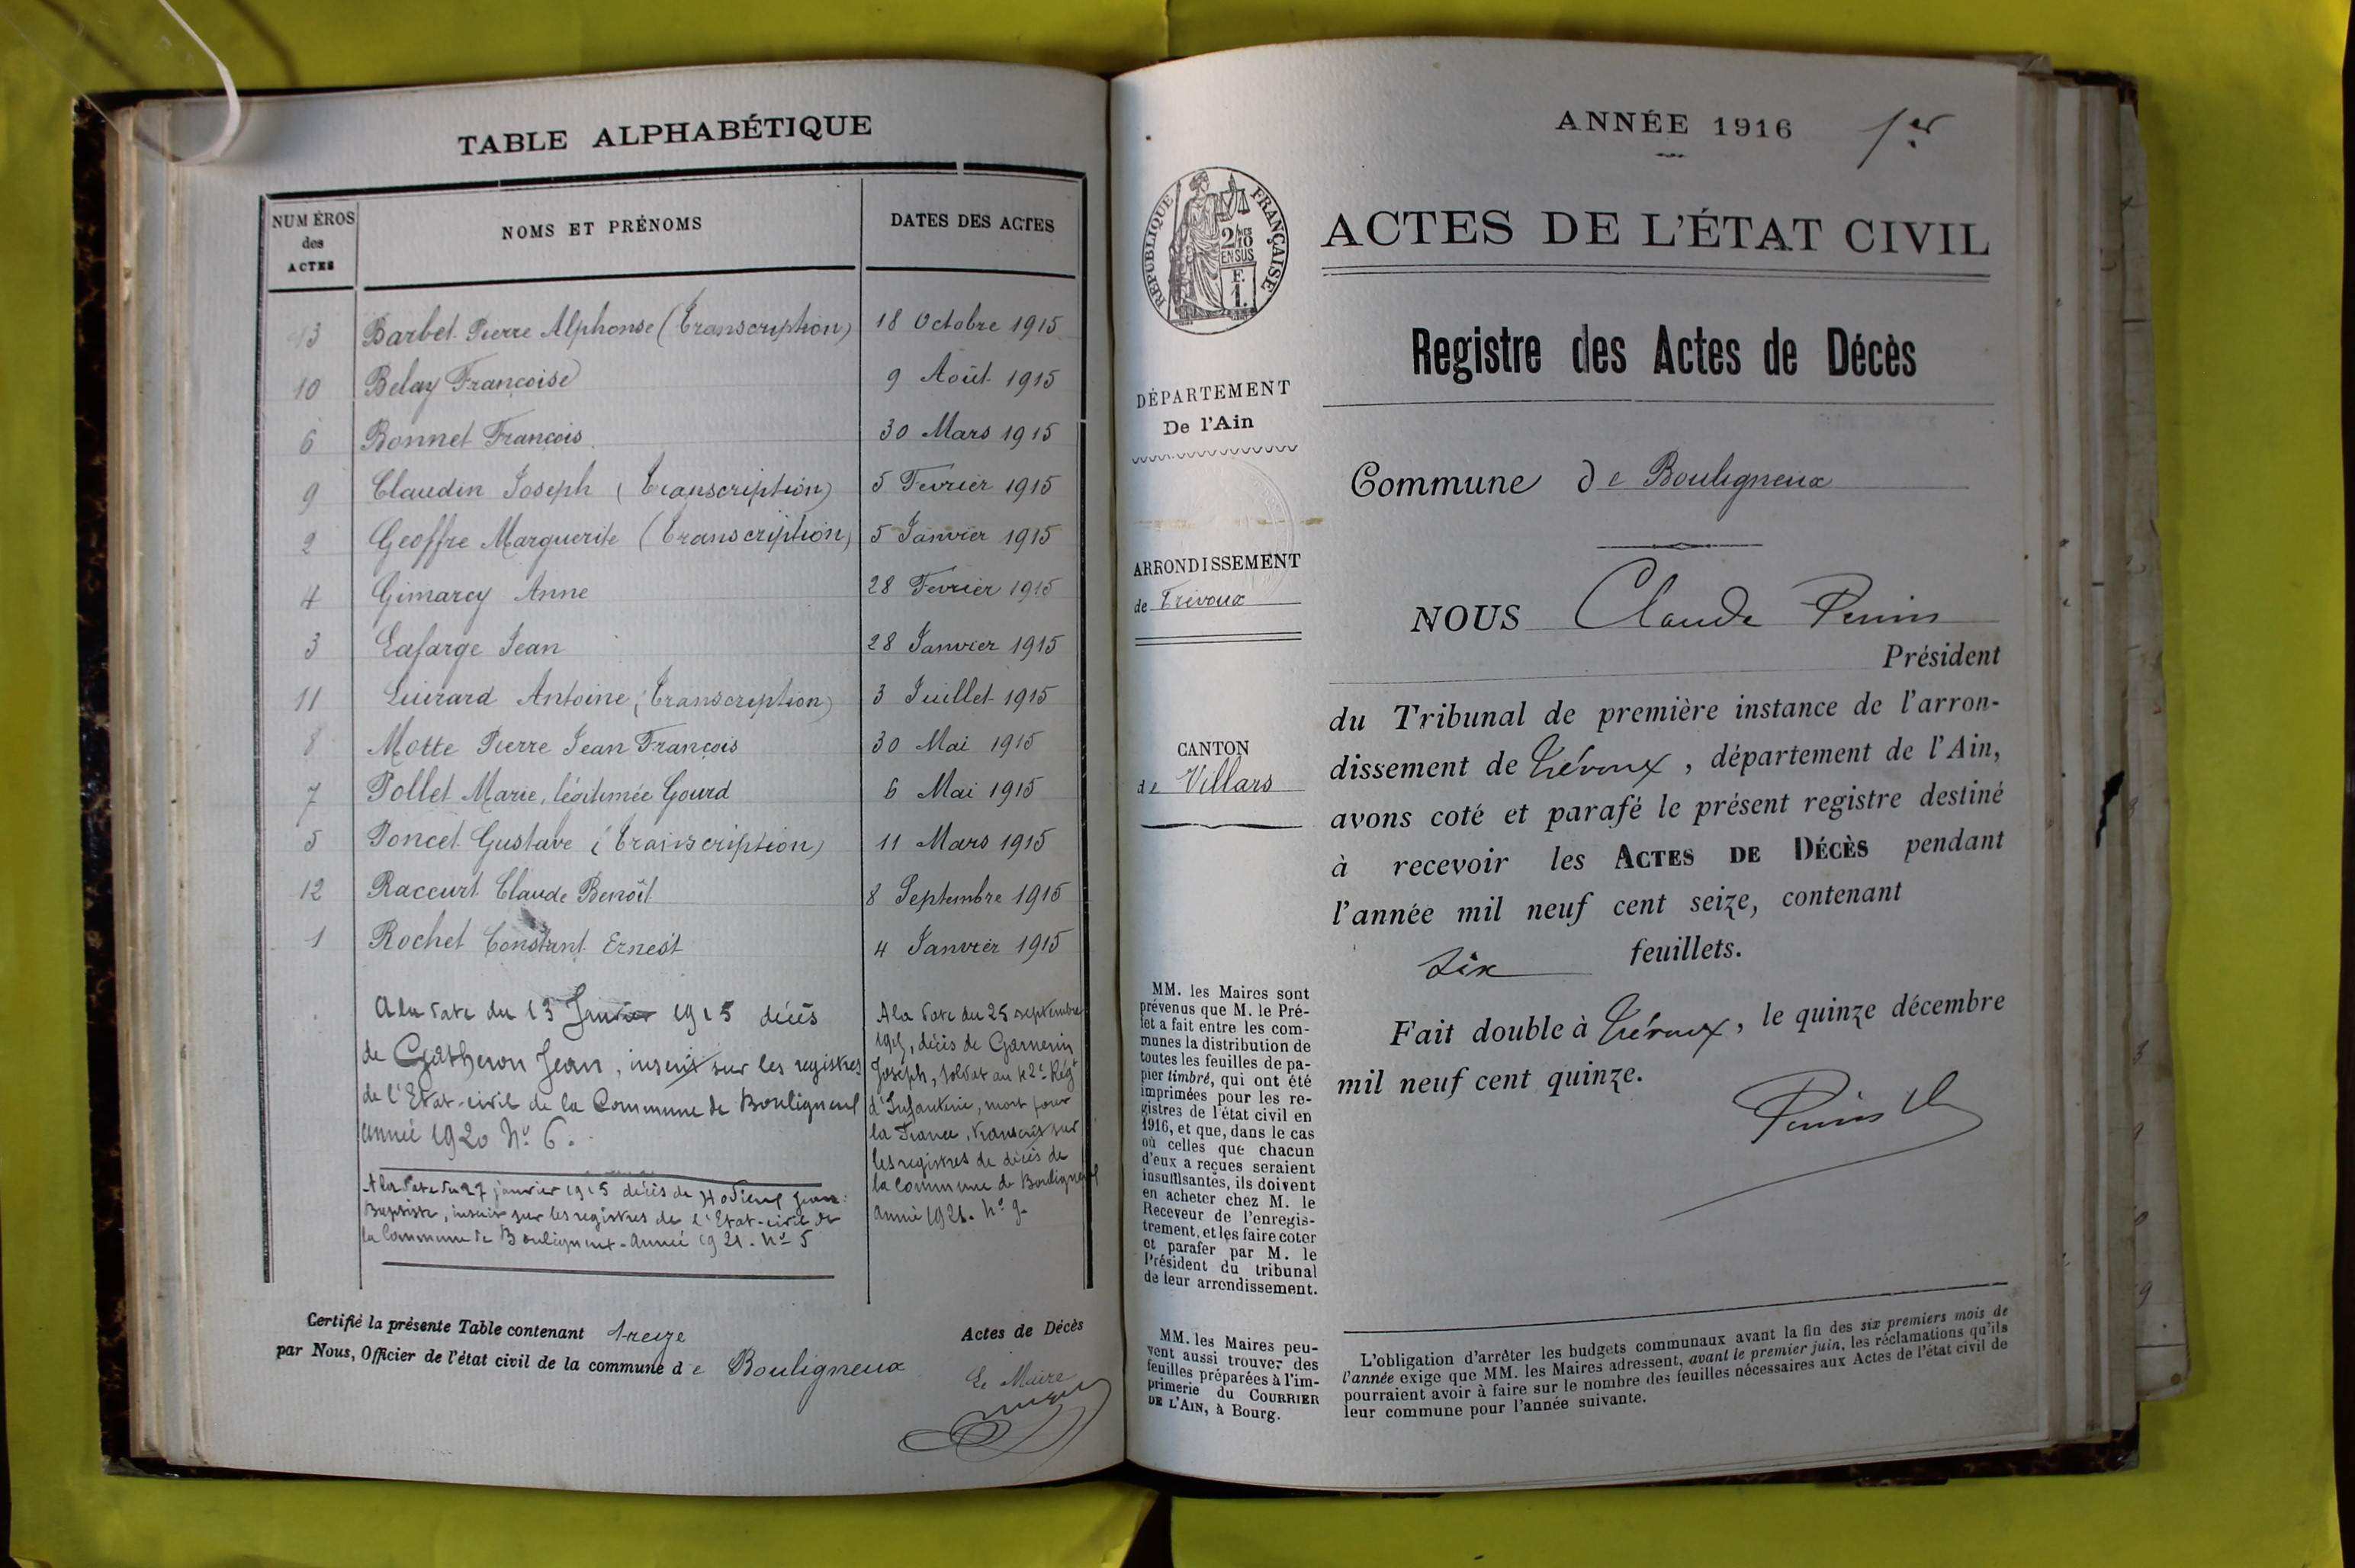 TABLE ALPHABÉTIQUE
NUMÉROS des ACTES
NOMS ET PRÉNOMS
DATES DES ACTES
13 Barbet Pierre Alphonse (Transcription) 18 Octobre 1915
10 Belay Françoise 9 Août 1915
6 Bonnet François 30 Mars 1915
9 Claudin Joseph (Transcription) 5 Fevrier 1915
2 Geoffre Marguerite (Transcription) 5 Janvier 1915
4 Gimarey Anne 28 Fevrier 1915
3 Lafarge Jean 28 Janvier 1915
11 Antoine (Transcription) 3 Juillet 1915
8 Motte Pierre Jean François 30 Mai 1915
7 Pollet Marie, légitimée Gourd 6 Mai 1915
5 Poncet Gustave (Transcription) 11 Mars 1915
12 Raccurt Claude Benoît 8 Septembre 1915
1 Rochet Constant Ernest 4 Janvier 1915
A la date du 13 Janvier 1915 décès
de Gatheron Jean, inscrit sur les registres
de l'Etat-civil de la Commune de Bouligneux
année 1920 N° 6.
A la date du 27 janvier 1915 décès de Jean
Baptiste, inscrit sur les registres de l'Etat-civil de
la Commune de Bouligneux - Année 1921 - N° 5
A la date du 25 septembre
1915, décès de Garnerin
Joseph, soldat au 42e Régt
d'Infanterie, mort pour
la France, transcrit sur
les registres de décès de
la Commune de Bouligneux
année 1921. N° 9.
Certifié la présente Table contenant treize Actes de Décès
par Nous, Officier de l'état civil de la commune de Bouligneux
Le Maire
ANNÉE 1916 1er
RÉPUBLIQUE FRANÇAISE
2/10 EN SUS
F. 1.
ACTES DE L'ÉTAT CIVIL
Registre des Actes de Décès
DÉPARTEMENT
De l'Ain
ARRONDISSEMENT
de Trévoux
CANTON
de Villars
MM. les Maires sont
prévenus que M. le Pré-
fet a fait entre les com-
munes la distribution de
toutes les feuilles de pa-
pier timbré, qui ont été
imprimées pour les re-
gistres de l'état civil en
1916, et que, dans le cas
où celles que chacun
d'eux a reçues seraient
insuffisantes, ils doivent
en acheter chez M. le
Receveur de l'enregis-
trement, et les faire coter
et parafer par M. le
Président du tribunal
de leur arrondissement.
MM. les Maires peu-
vent aussi trouver des
feuilles préparées à l'im-
primerie du COURRIER
DE L'AIN, à Bourg.
Commune de Bouligneux
NOUS Claude Perrin
Président
du Tribunal de première instance de l'arron-
dissement de Trévoux, département de l'Ain,
avons coté et parafé le présent registre destiné
à recevoir les ACTES DE DÉCÈS pendant
l'année mil neuf cent seize, contenant
six feuillets.
Fait double à Trévoux, le quinze décembre
mil neuf cent quinze.
Perrin
L'obligation d'arrêter les budgets communaux avant la fin des six premiers mois de
l'année exige que MM. les Maires adressent, avant le premier juin, les réclamations qu'ils
pourraient avoir à faire sur le nombre des feuilles nécessaires aux Actes de l'état civil de
leur commune pour l'année suivante.